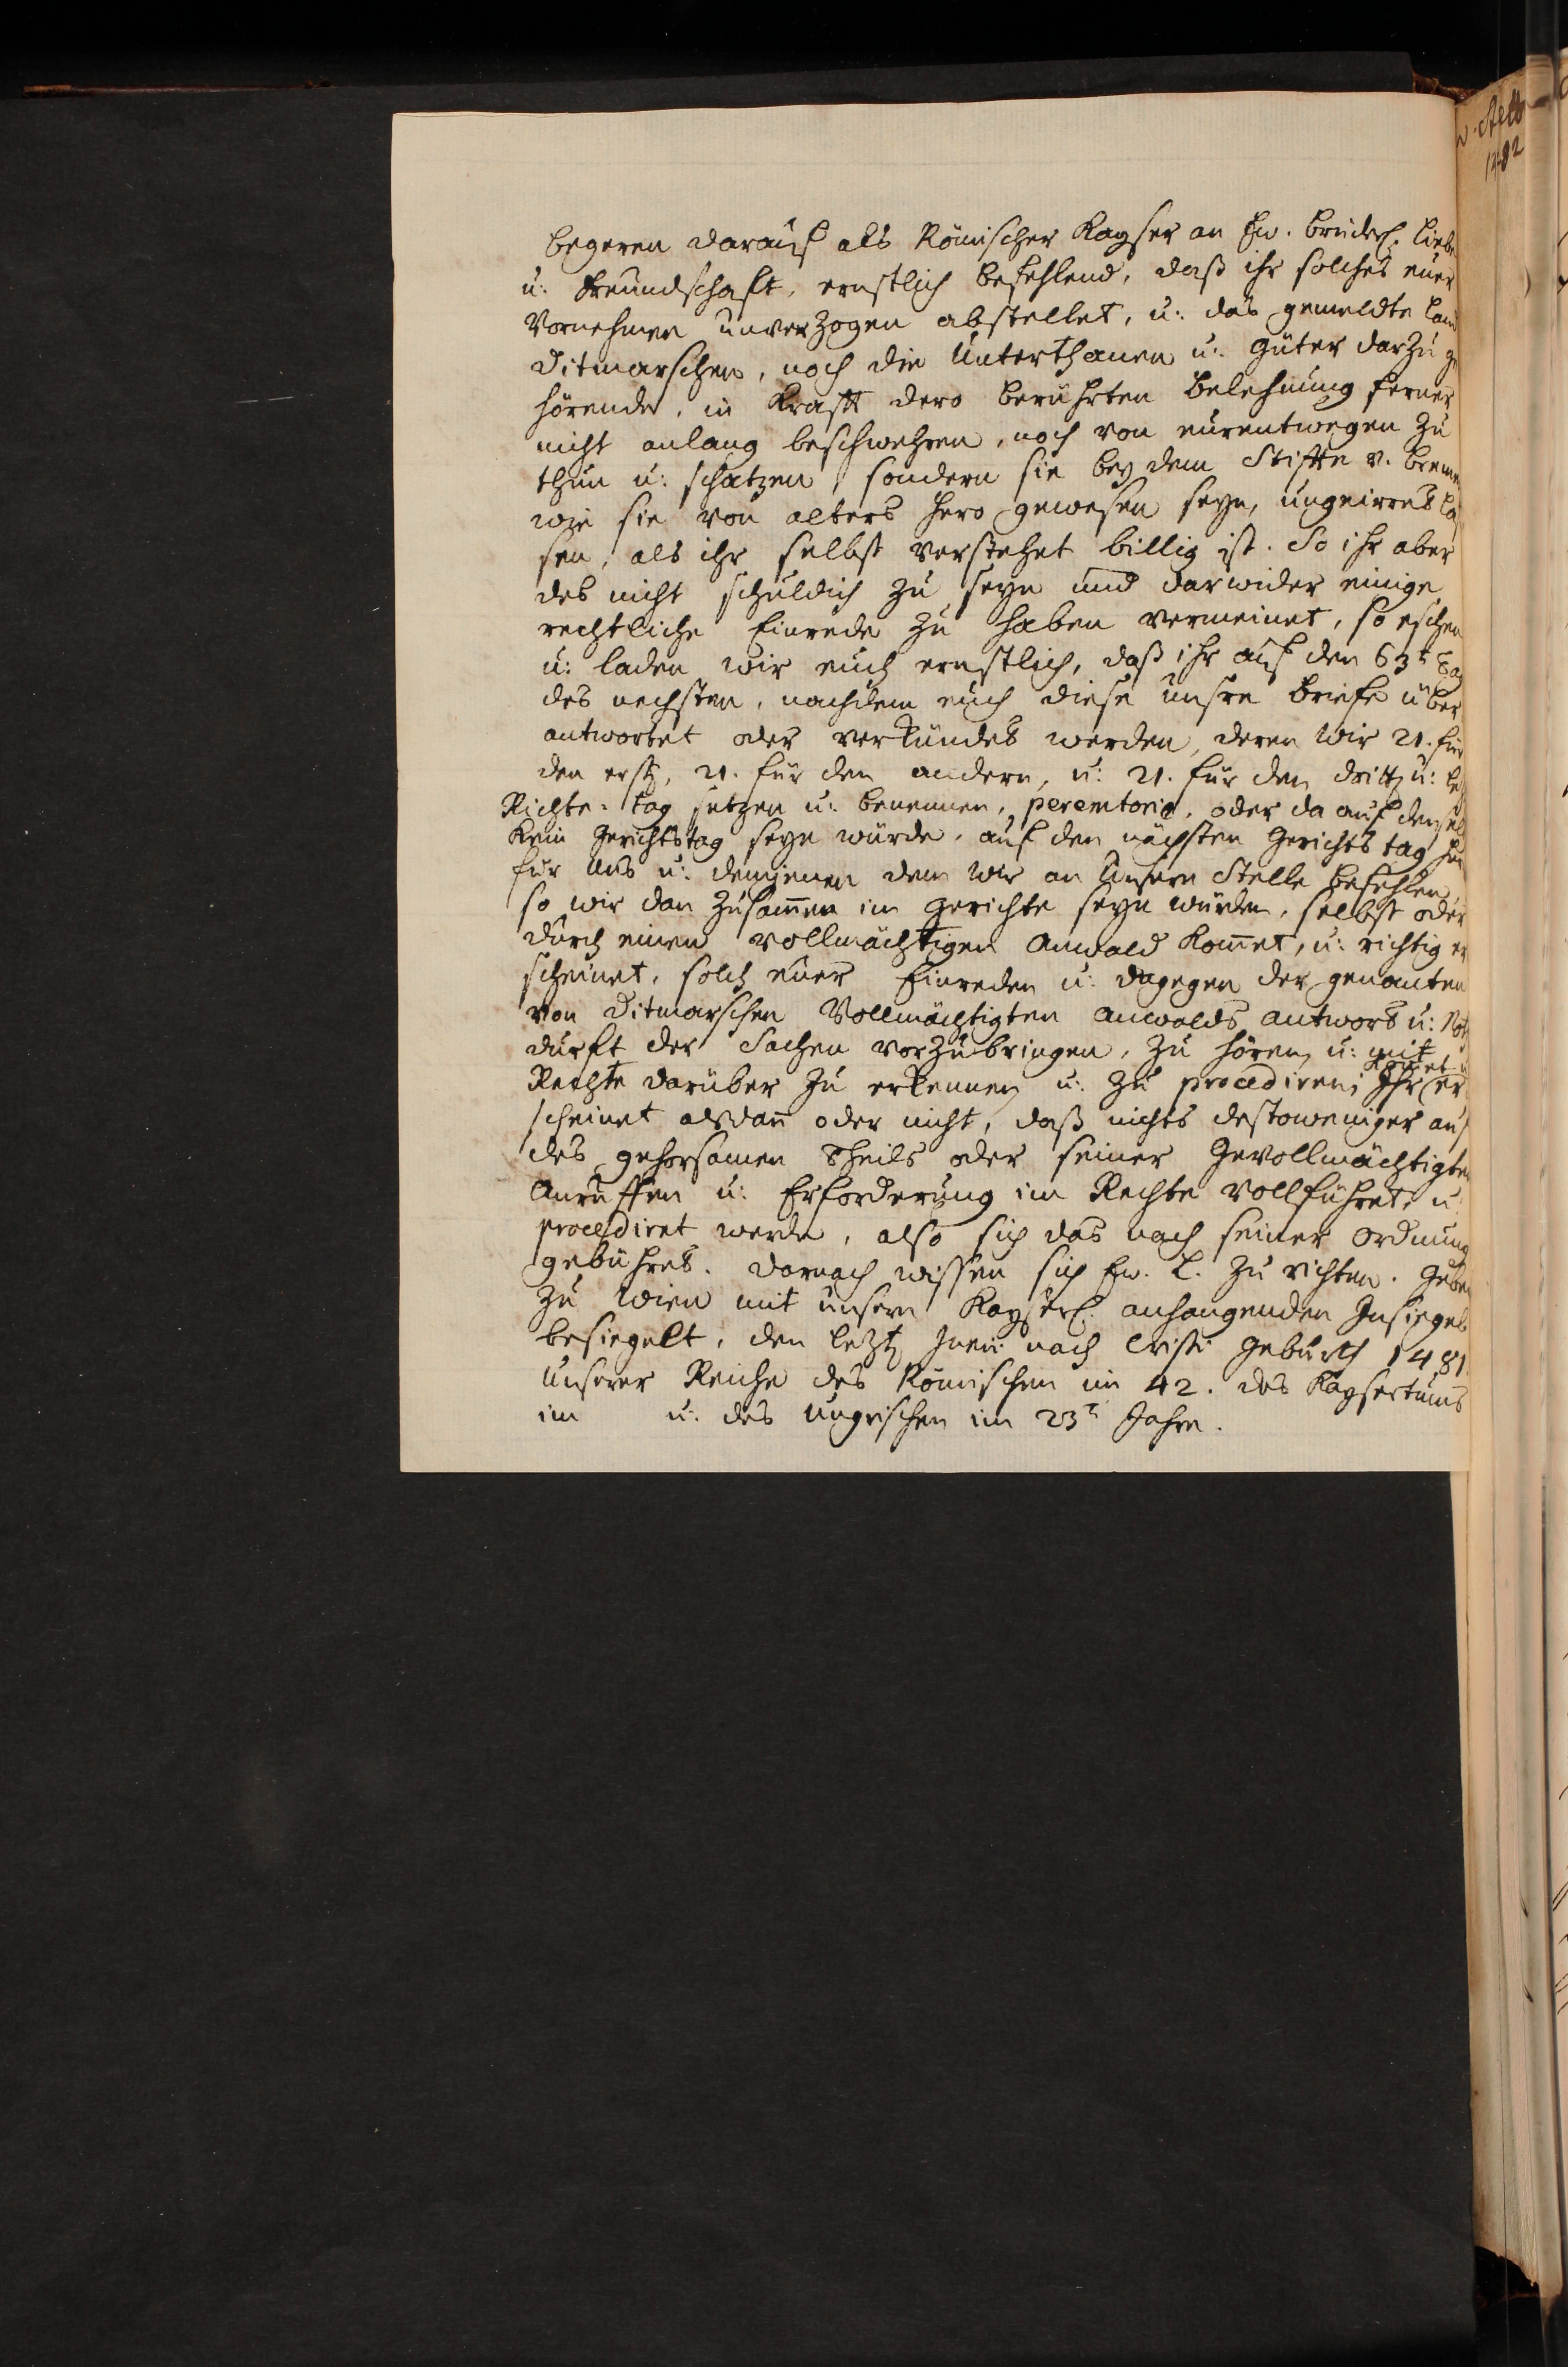 begeren darauf als Römischer Kayser an Ew. brüderl. Liebe
u: Freundschaft, ernstlich befehlend, daß ihr solches euer
Vornehmen unverzogen abstellet, u: das gemeldte Land
Ditmarschen, noch die Unterthanen u: Güter darzu ge
hörende, in Krafft dero berührten Belehnung ferner
nicht anlang beschwehren, noch von eurentwegen zu
thun u: schatzen, sondern sie bey dem Stiffte v. Bremen
wie sie von alters hero gewesen seyn, ungeirret la
sen, als ihr selbst verstehet billig ist. So ihr aber
des nicht schuldich zu seyn und darwider einige
rechtliche Einrede zu haben vermeinet, so eschen
u: laden wir euch ernstlich, daß ihr auf den 63t Tag
des nechsten, nachdem euch diese unsre Briefe über
antwortet oder verkündet werden, deren wir 21. für
den erst, 21. für den andern, u: 21. für den dritt u: le
Richte-tag setzen u: benennen, peremtorie, oder da auf densel
kein Gerichtstag seyn würde, auf den nächsten Gerichts tag her
für uns u: demjenen dem wir an Unsern Stelle befehlen
so wir dan zusammen im Gerichte seyn würden, selbst oder
durch einen vollmächtigen Anwald kommet, u: richtig er
scheinet, solch euer Einreden u: dagegen der genanten
von Ditmarschen Vollmächtigten Anwalds antwort u: Not
durft der Sachen vorzubringen, zu hören, u: mit
Rechte darüber zu erkennen u: zu procediren; Ihr kommet u er
scheinet alsdann oder nicht, daß nichts destoweniger auf
des gehorsamen Theils oder seiner Gevollmächtigten
Anruffen u: Erforderung im Rechte vollführet u:
procediret werde, also sich das nach seiner Ordnung
gebühret. Darnach wissen sich Ew. L. zu richten. Geben
zu Wien mit unserm Kayserl. anhangenden Insiegel
besiegelt, den letzt Junii nach Cristi Geburth 1481.
Unserer Reiche des Römischen im 42. des Kaysertums
im u: des Ungrischen im 23t Jahre.
1482